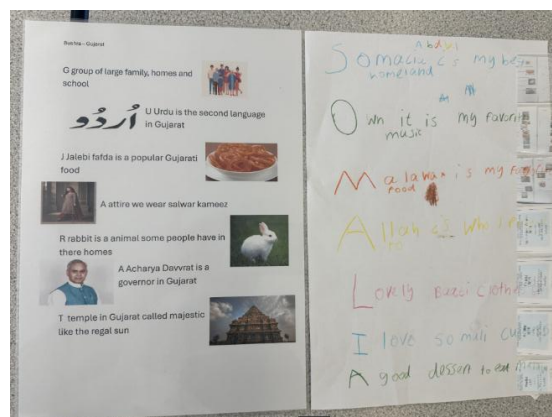 Bushra – Gujarat
G group of large family, homes and
school
اُردُو
U Urdu is the second language
in Gujarat
J Jalebi fafda is a popular Gujarati
food
A attire we wear salwar kameez
R rabbit is a animal some people have in
there homes
A Acharya Davvrat is a
governor in Gujarat
T temple in Gujarat called majestic
like the regal sun
Abdi
Somalia is my
homeland
Own it is my favorite
music
Malawax is my
food
Allah is who I
Lovely clothe
I love somali
A good dessert to eat